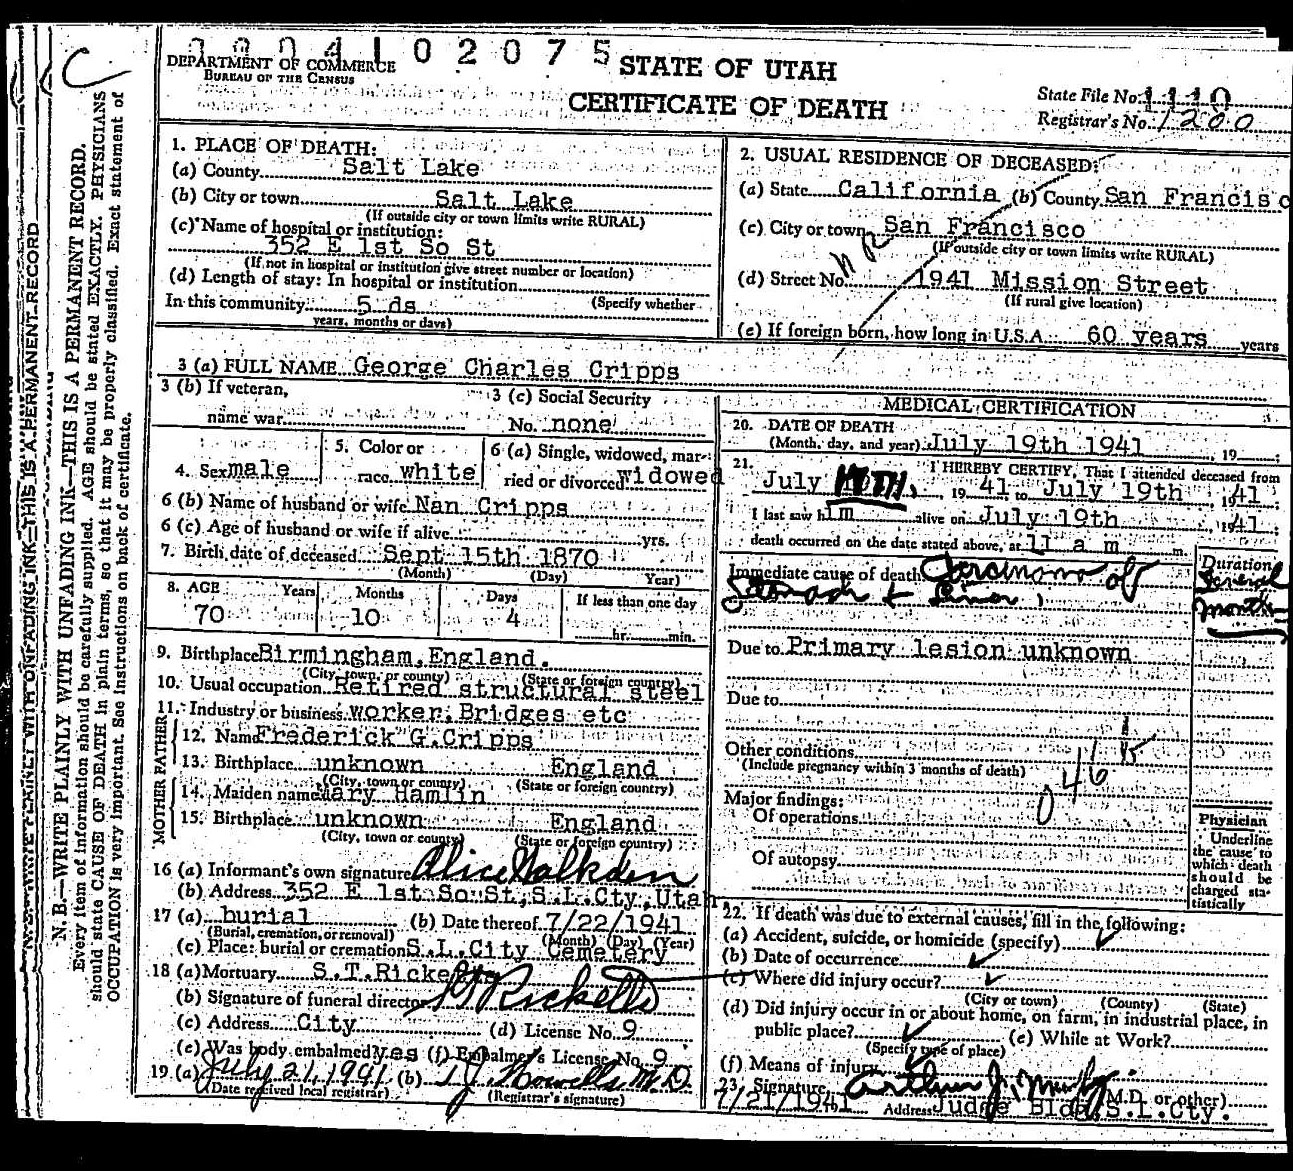 C
004102075
DEPARTMENT OF COMMERCE
BUREAU OF THE CENSUS
STATE OF UTAH
CERTIFICATE OF DEATH
State File No. 1110
Registrar's No. 1200
N. B.—WRITE PLAINLY WITH UNFADING INK—THIS IS A PERMANENT RECORD.
Every item of information should be carefully supplied. AGE should be stated EXACTLY. PHYSICIANS
should state CAUSE OF DEATH in plain terms, so that it may be properly classified. Exact statement of
OCCUPATION is very important. See instructions on back of certificate.
1. PLACE OF DEATH:
(a) County Salt Lake
(b) City or town Salt Lake
(If outside city or town limits write RURAL)
(c) Name of hospital or institution:
352 E 1st So St
(If not in hospital or institution give street number or location)
(d) Length of stay: In hospital or institution
(Specify whether
In this community 5 ds
years, months or days)
2. USUAL RESIDENCE OF DECEASED:
(a) State California (b) County San Francisc
(c) City or town San Francisco
(If outside city or town limits write RURAL)
NR
(d) Street No. 1941 Mission Street
(If rural give location)
(e) If foreign born, how long in U.S.A. 60 years years
3 (a) FULL NAME George Charles Cripps
3 (b) If veteran,
name war
3 (c) Social Security
No. none
4. Sex male
5. Color or
race white
6 (a) Single, widowed, mar-
ried or divorced widowed
6 (b) Name of husband or wife Nan Cripps
6 (c) Age of husband or wife if alive yrs.
7. Birth date of deceased Sept 15th 1870
(Month) (Day) Year)
8. AGE Years Months Days If less than one day
70 10 4 hr. min.
9. Birthplace Birmingham, England.
(City, town, or county) (State or foreign country)
10. Usual occupation Retired structural steel
11. Industry or business worker, Bridges etc
FATHER
12. Name Frederick G. Cripps
13. Birthplace unknown England
(City, town or county) (State or foreign country)
MOTHER
14. Maiden name Mary Hamlin
15. Birthplace unknown England
(City, town or county) (State or foreign country)
16 (a) Informant's own signature Alice Walkden
(b) Address 352 E 1st So St, S.L.Cty, Utah
17 (a) burial (b) Date thereof 7/22/1941
(Burial, cremation, or removal) (Month) (Day) (Year)
(c) Place: burial or cremation S.L.City Cemetery
18 (a) Mortuary S.T.Ricketts
(b) Signature of funeral director Ricketts
(c) Address City (d) License No. 9
(e) Was body embalmed? yes (f) Embalmer's License No. 9
19. (a) July 21, 1941 (b) T J Howells M.D.
(Date received local registrar) (Registrar's signature)
MEDICAL CERTIFICATION
20. DATE OF DEATH
(Month, day, and year) July 19th 1941, 19
21. I HEREBY CERTIFY, That I attended deceased from
July, 1941 to July 19th, 1941;
I last saw him alive on July 19th 1941;
death occurred on the date stated above, at 11 a m m.
Immediate cause of death Carcinoma of
Stomach & Liver
Duration
Several
months
Due to Primary lesion unknown
Due to
Other conditions
(Include pregnancy within 3 months of death)
046
Major findings:
Of operations
Of autopsy
Physician
Underline
the cause to
which death
should be
charged sta-
tistically
22. If death was due to external causes, fill in the following:
(a) Accident, suicide, or homicide (specify)
(b) Date of occurrence
(c) Where did injury occur?
(City or town) (County) (State)
(d) Did injury occur in or about home, on farm, in industrial place, in
public place? (e) While at Work?
(Specify type of place)
(f) Means of injury
23. Signature Arthur J. Murphy (M.D. or other)
7/21/1941 Address Judge Bldg, S.L.Cty.